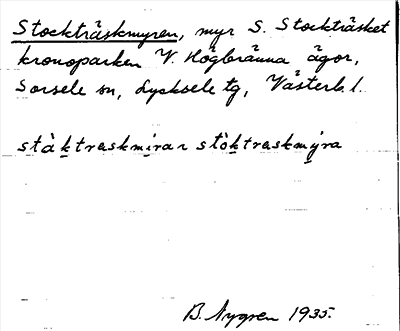 Stockträskmyren, myr S. Stockträsket
kronoparken V. Högbränna ägor,
Sorsele sn, Lycksele tg, Västerb. l.
stàk̲traskmi̲ran stòk̲traskmý̲ra
B. Nygren 1935.